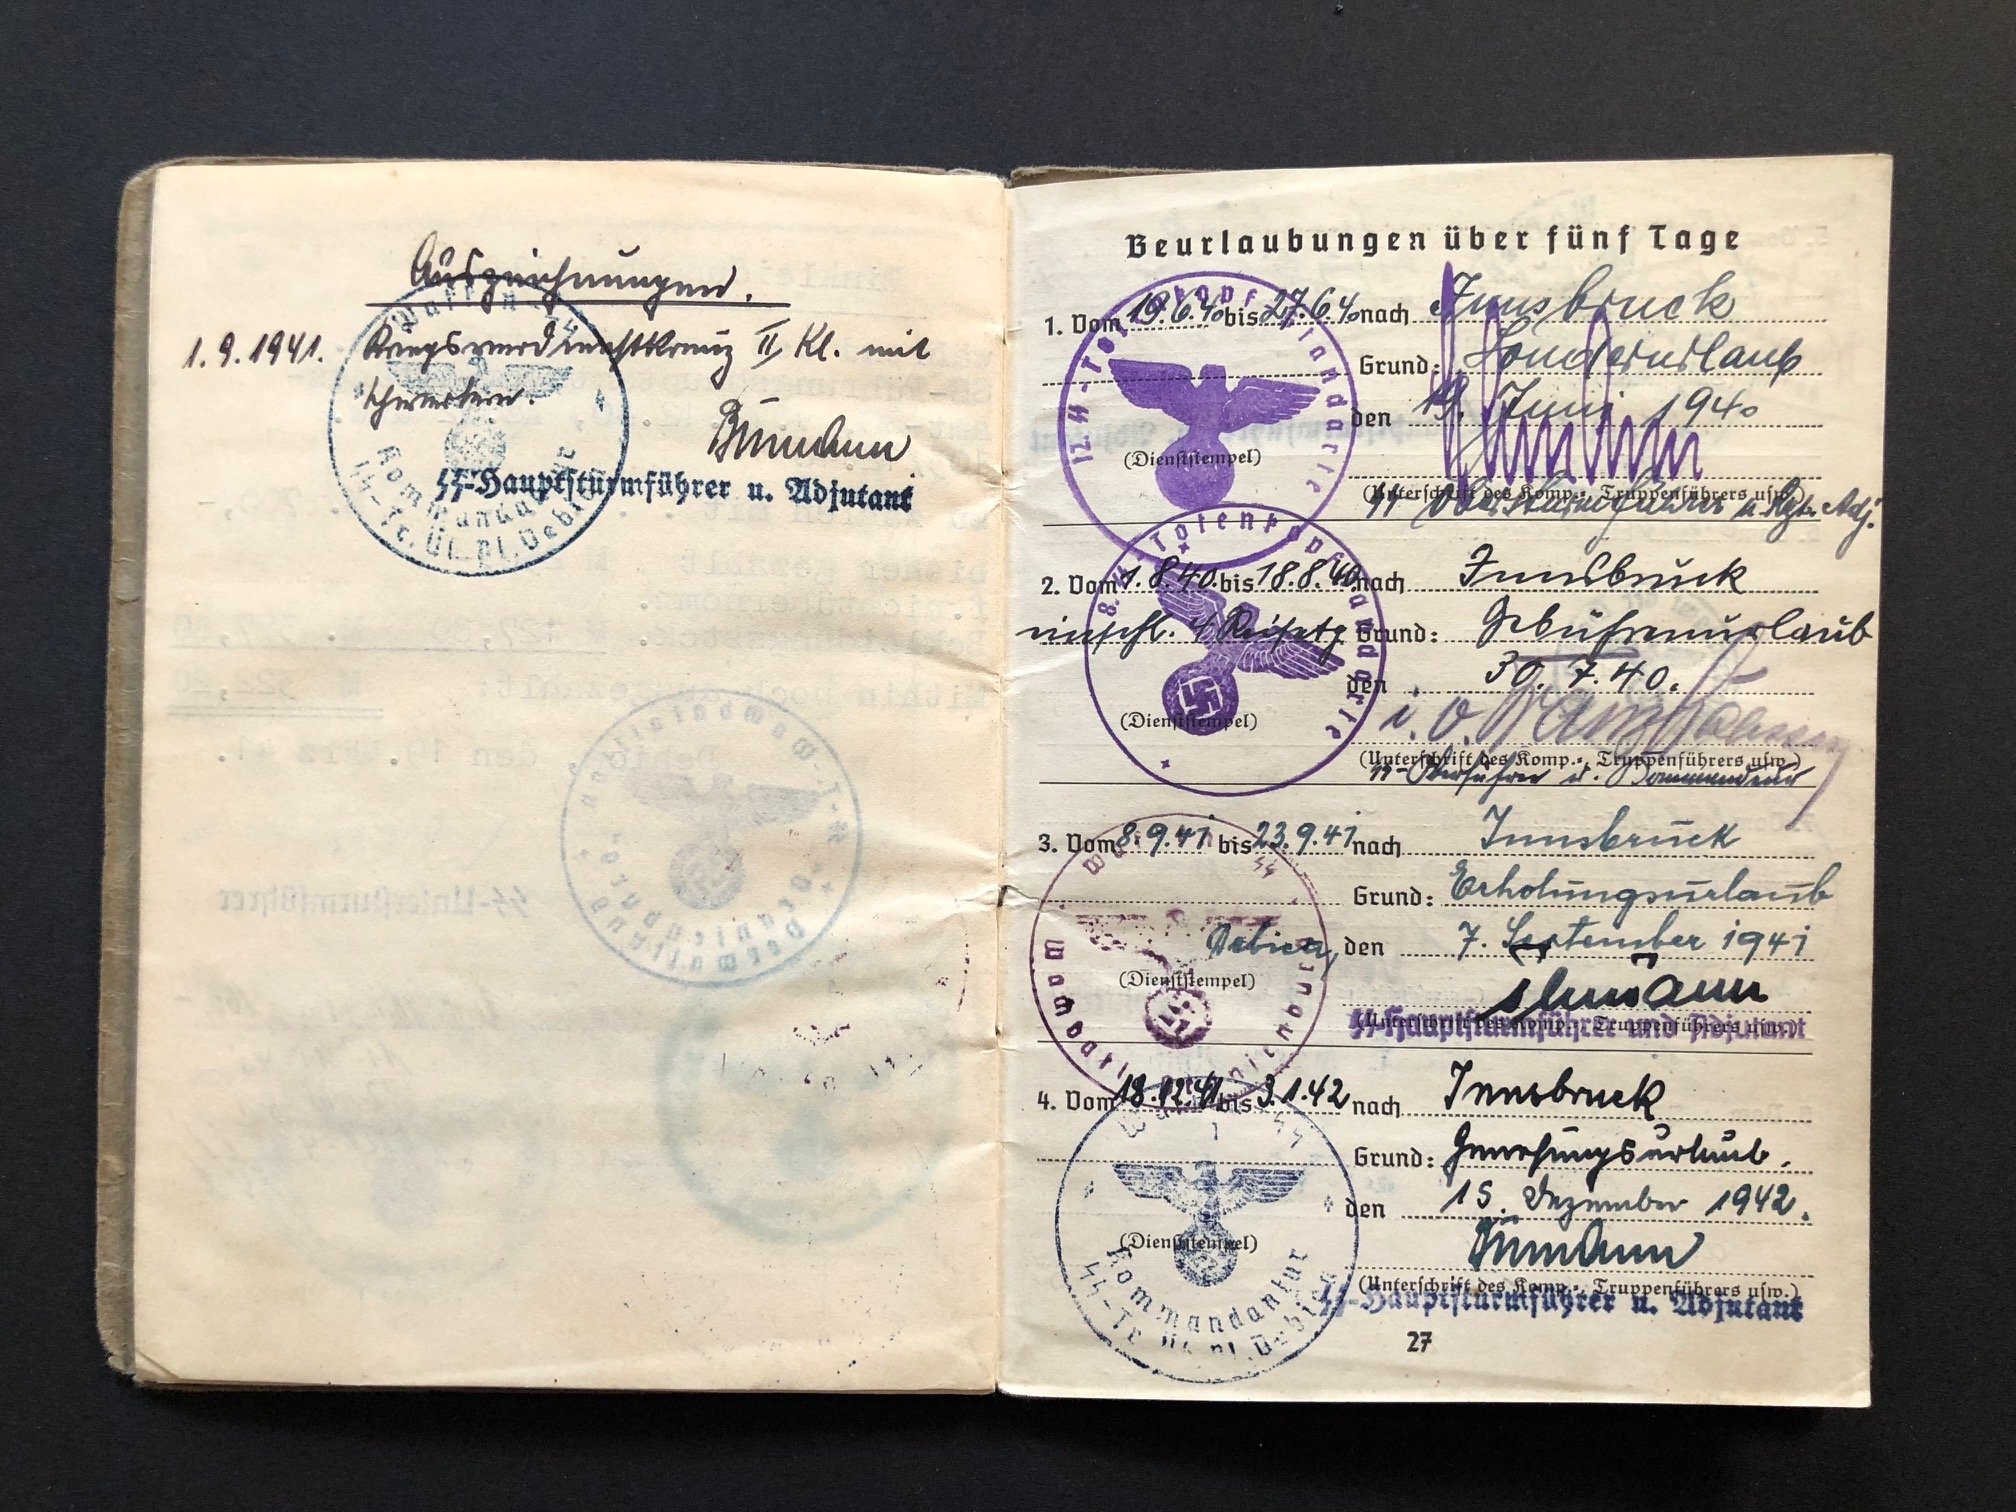 Auszeichnungen.
1.9.1941. Kriegsverdienstkreuz II. Kl. mit
Schwertern.
SS-Hauptsturmführer u. Adjutant
Waffen-SS
Kommandantur
SS-Tr. Üb. Pl. Debica
Beurlaubungen über fünf Tage
1. Vom 19.6.40 bis 27.6.40 nach Innsbruck
Grund: Sonderurlaub
den 19. Juni 1940
(Dienststempel)
12. SS-Totenkopfstandarte
(Unterschrift des Komp.-, Truppenführers usw.)
SS Obersturmführer u. Rgts. Adj.
2. Vom 1.8.40. bis 18.8.40. nach Innsbruck
einschl. 4 Reisetg Grund: Gebührnurlaub
den 30.7.40.
(Dienststempel)
8. SS Totenkopfstandarte
i. V.
(Unterschrift des Komp.-, Truppenführers usw.)
SS-Oberführer u. Kommandeur
3. Vom 8.9.41 bis 23.9.41 nach Innsbruck
Grund: Erholungsurlaub
Debica, den 7. September 1941
(Dienststempel)
(Unterschrift des Komp.-, Truppenführers usw.)
SS-Hauptsturmführer und Adjutant
4. Vom 18.12.41 bis 3.1.42 nach Innsbruck
Grund: Genesungsurlaub.
den 15. Dezember 1942.
(Dienststempel)
Waffen SS
Kommandantur
SS-Tr. Üb. Pl. Debica
(Unterschrift des Komp.-, Truppenführers usw.)
SS-Hauptsturmführer u. Adjutant
27